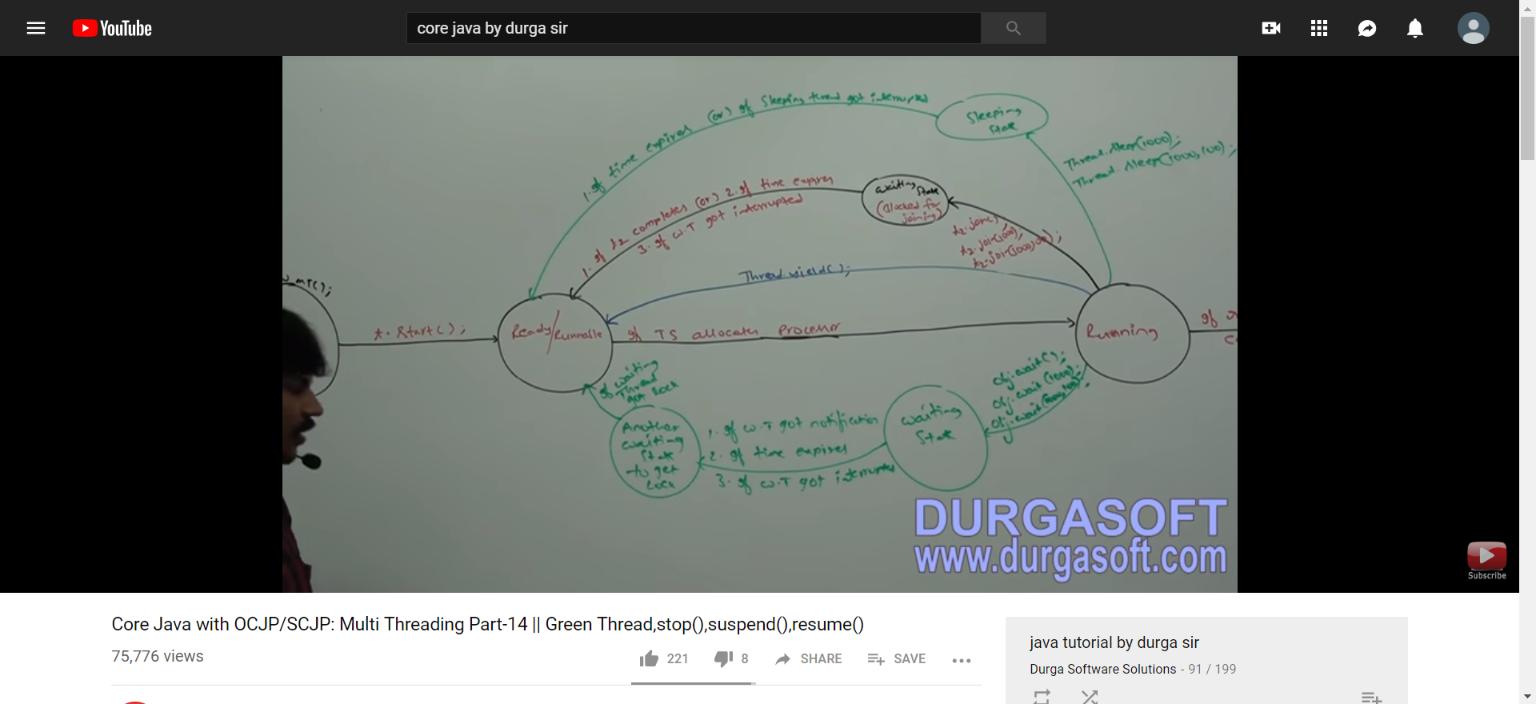 YouTube
core java by durga sir
1. If time expires (or) If Sleeping thread got interrupted
Sleeping
State
Thread.sleep(1000);
Thread.sleep(1000,100);
1. If t2 completes (or) 2. If time expires
3. If W.T got interrupted
waiting State
(Blocked for
joining)
t2.join();
t2.join(1000);
Thread.yield();
t.start();
Ready/Runnable
If TS allocates processor
Running
If waiting
Thread
got lock
Another
waiting
State
to get
lock
1. If W.T got notification
2. If time expires
3. If W.T got interrupted
waiting
State
obj.wait();
obj.wait(1000);
DURGASOFT
www.durgasoft.com
Subscribe
Core Java with OCJP/SCJP: Multi Threading Part-14 || Green Thread,stop(),suspend(),resume()
75,776 views
221
8
SHARE
SAVE
java tutorial by durga sir
Durga Software Solutions - 91 / 199